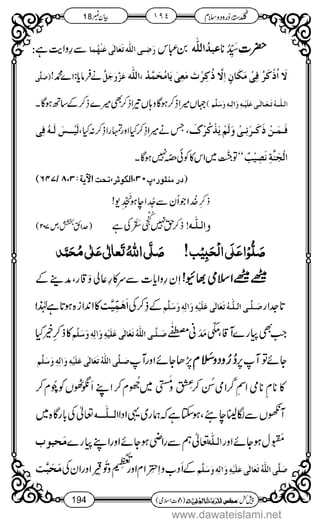 گلدستۂ درود و سلام ۱۹۴ بیان نمبر 18
حضرتِ سَیِّدُنا عبدُاللہ بن عباس رَضِیَ اللہُ تَعَالٰی عَنْہُما سے روایت ہے:
لَا اُذْکَرُ فِیْ مَکَانٍ اِلَّا ذُکِرْتَ مَعِیَ یَامُحَمَّدُ، اللہ عَزَّوَجَلَّ نے فرمایا: اے محمد! (صلی
اللہ تعالٰی علیہ والہ وسلم) جہاں میرا ذکر ہوگا وہاں تیرا بھی ذکر میرے ذکر کے ساتھ ہوگا۔
فَمَنْ ذَکَرَنِیْ وَلَمْ یَذْکُرْکَ، جس نے میرا ذکر کیا اور تمہارا ذکر نہ کیا، لَیْسَ لَہٗ فِی
الْجَنَّۃِ نَصِیْبٌ "تو جنّت میں اس کا کوئی حصّہ نہیں ہوگا۔
(در منثور پ ۳۰، الکوثر، تحت الآیۃ: ۳، ۸ / ۶۴۷)
ذکرِ خدا جو اُن سے جُدا چاہو نجدیو!
واللہ! ذکرِ حق نہیں کنجی سقر کی ہے (حدائقِ بخشش، ص ۲۰۷)
صَلُّوْا عَلَی الْحَبِیْب! صَلَّی اللہُ تَعَالٰی عَلٰی مُحَمَّد
میٹھے میٹھے اسلامی بھائیو! اِن روایات سے سرکارِ عالی وقار، مدینے کے
تاجدار صَلَّی اللہُ تَعَالٰی عَلَیْہِ وَاٰلِہٖ وَسَلَّم کے ذکر کی اَہَمِّیَّت کا اندازہ ہوتا ہے لہٰذا
جب بھی پیارے آقا، مکی مَدَنی مُصْطَفٰے صَلَّی اللہُ تَعَالٰی عَلَیْہِ وَاٰلِہٖ وَسَلَّم کا ذکرِ خیر کیا
جائے تو آپ پر دُرُود و سلام پڑھا جائے اور آپ صَلَّی اللہُ تَعَالٰی عَلَیْہِ وَاٰلِہٖ وَسَلَّم
کا نامِ نامی اسمِ گرامی سُن کر عشق و مستی میں جھوم کر اپنے انگوٹھوں کو چُوم کر
آنکھوں سے لگا لینا چاہئے، ہوسکتا ہے، کہ ہماری یہی ادا اللہ تعالٰی کی بارگاہ میں
مقبول ہوجائے اور اللہ تعالٰی ہم سے راضی ہوجائے اور اپنے پیارے محبوب
صَلَّی اللہُ تَعَالٰی عَلَیْہِ وَاٰلِہٖ وَسَلَّم کے اَدب و احترام اور تعظیم و توقیر اور ان کی مَحَبَّت
194
www.dawateislami.net